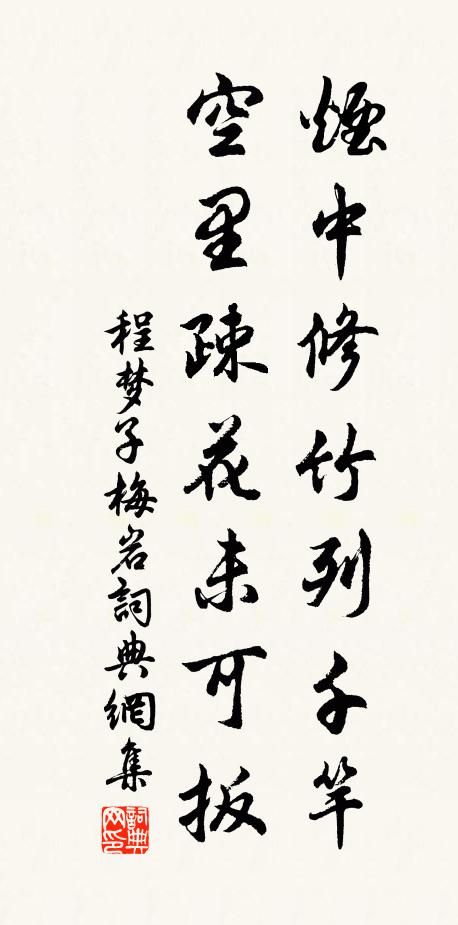 煙中修竹列千竿
空里疎花未可扳
程梦子梅岩詞典網集
詞典网印